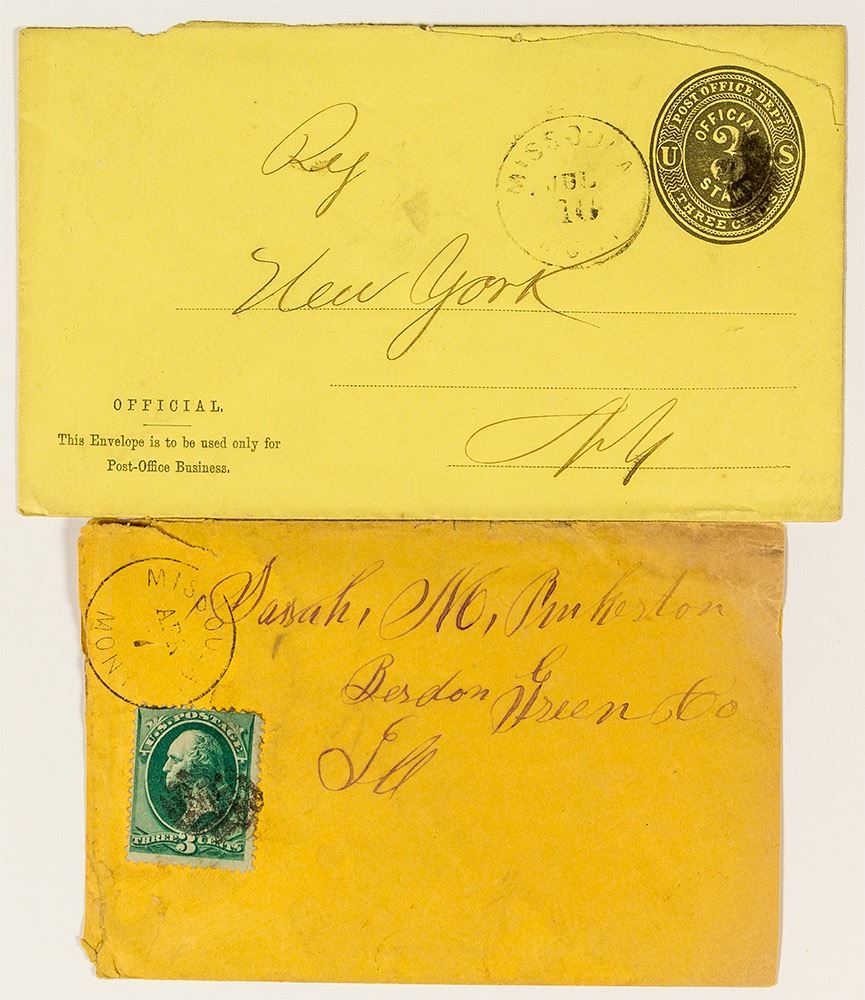 POST OFFICE DEPT
OFFICIAL
U 3 S
STAMP
THREE CENTS
MISSOULA
JUL
10
New York
N Y
OFFICIAL.
This Envelope is to be used only for
Post-Office Business.
MISSOULA
MON
Sarah, M, Pinkerton
Berdon Green Co
Ill
U.S. POSTAGE
THREE 3 CENTS